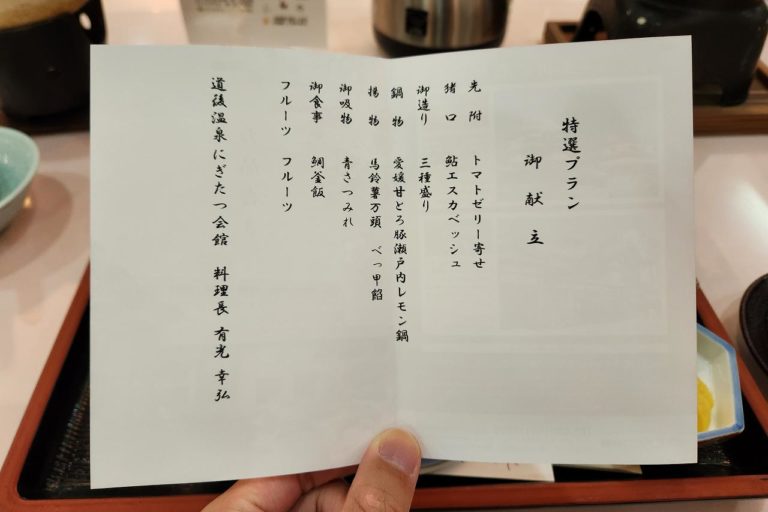 特選プラン
御献立
先附 トマトゼリー寄せ
猪口 鮎エスカベッシュ
御造り 三種盛り
鍋物 愛媛甘とろ豚瀬戸内レモン鍋
揚物 馬鈴薯万頭 べっ甲餡
御吸物 青さつみれ
御食事 鯛釜飯
フルーツ フルーツ
道後温泉にぎたつ会館 料理長 有光 幸弘